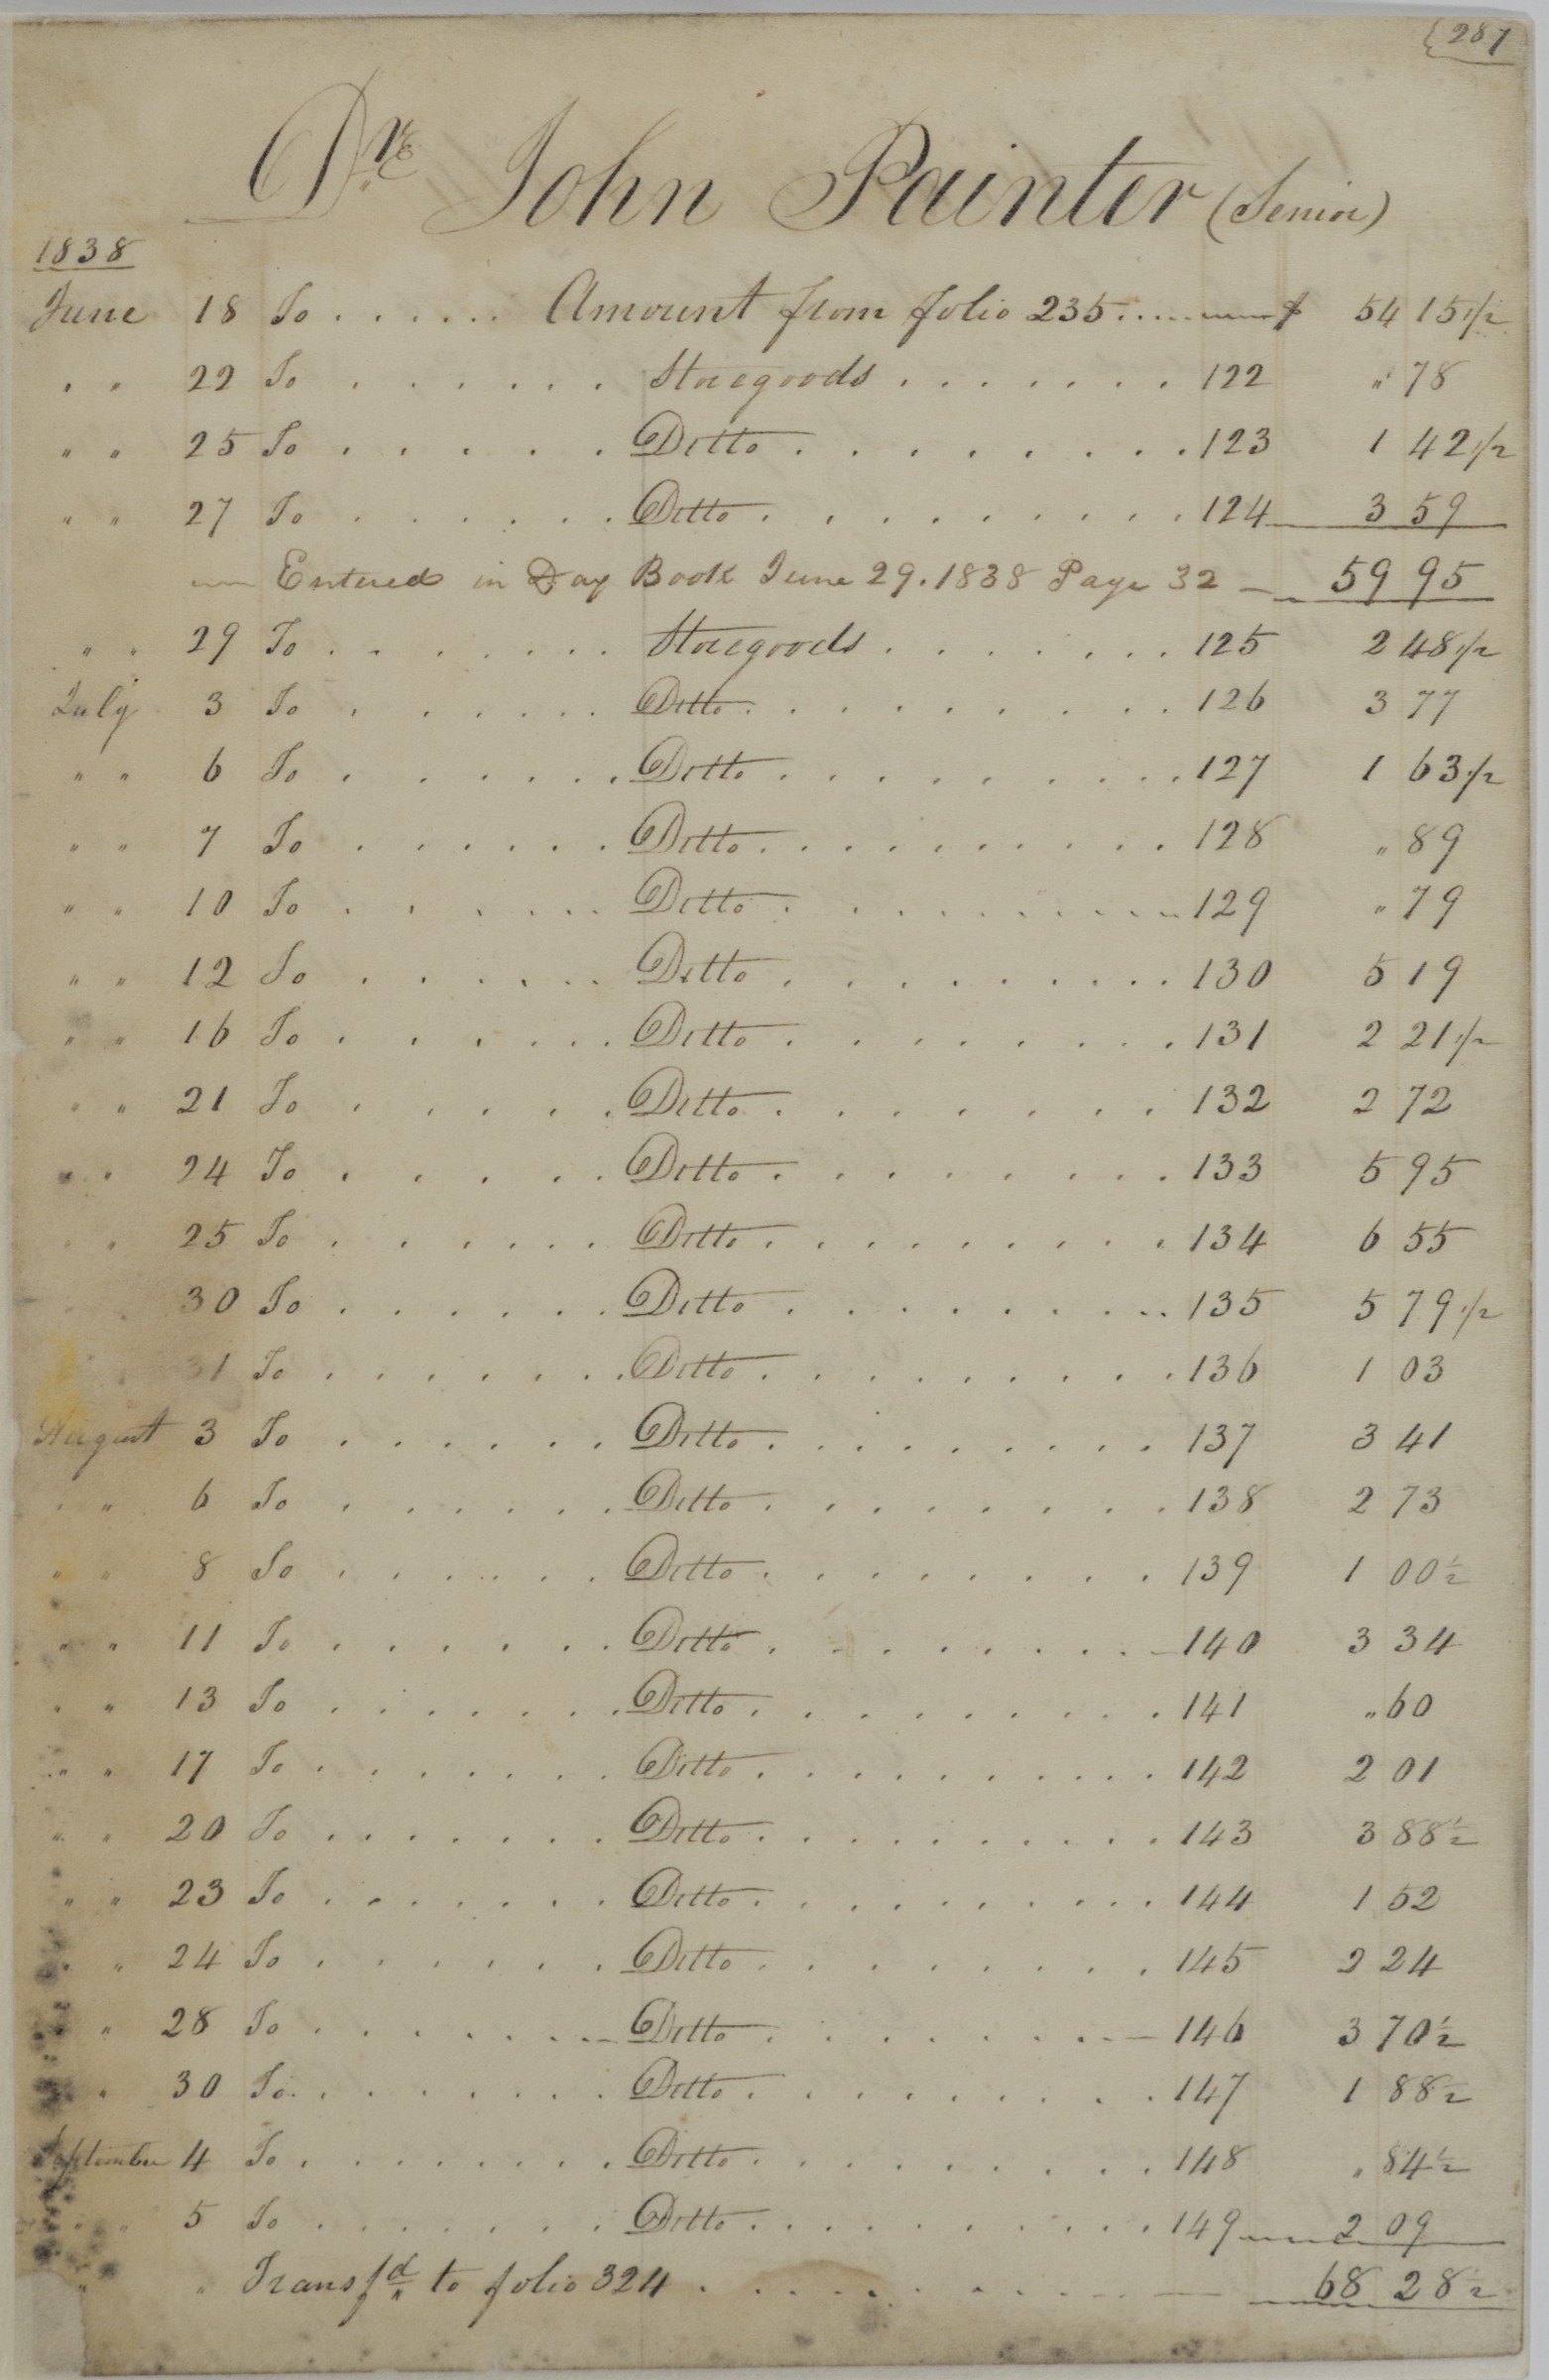 {287
Dr. John Painter (Senior)
1838
June 18 To . . . . . . Amount from folio 235 . . . . $ 54 15 1/2
" " 22 To . . . . . . Storegoods . . . . . . . 122 " 78
" " 25 To . . . . . . Ditto . . . . . . . . . 123 1 42 1/2
" " 27 To . . . . . . Ditto . . . . . . . . . 124 3 59
Entered in Day Book June 29. 1838 Page 32 — 59 95
" " 29 To . . . . . . . Storegoods . . . . . . . 125 2 48 1/2
July 3 To . . . . . . Ditto . . . . . . . . . 126 3 77
" " 6 To . . . . . . Ditto . . . . . . . . . 127 1 63 1/2
" " 7 To . . . . . . Ditto . . . . . . . . . . 128 " 89
" " 10 To . . . . . . Ditto . . . . . . . . . 129 " 79
" " 12 To . . . . . . Ditto . . . . . . . . . 130 5 19
" " 16 To . . . . . . Ditto . . . . . . . . . 131 2 21 1/2
" " 21 To . . . . . . Ditto . . . . . . . . 132 2 72
" " 24 To . . . . . Ditto . . . . . . . . . 133 5 95
" " 25 To . . . . . . Ditto . . . . . . . . . 134 6 55
30 To . . . . . . Ditto . . . . . . . . . 135 5 79 1/2
31 To . . . . . . . Ditto . . . . . . . . . 136 1 03
August 3 To . . . . . . Ditto . . . . . . . . . 137 3 41
" " 6 To . . . . . . Ditto . . . . . . . . . 138 2 73
" " 8 To . . . . . . Ditto . . . . . . . . . 139 1 00 1/2
" " 11 To . . . . . . Ditto . . . . . . . . 140 3 34
" " 13 To . . . . . . . Ditto . . . . . . . . . 141 " 60
" " 17 To . . . . . . . Ditto . . . . . . . . . . 142 2 01
" " 20 To . . . . . . . Ditto . . . . . . . . . . 143 3 88 1/2
" " 23 To . . . . . . . Ditto . . . . . . . . . . 144 1 52
" " 24 To . . . . . . Ditto . . . . . . . . . 145 2 24
" " 28 To . . . . . . . Ditto . . . . . . . . 146 3 70 1/2
" " 30 To . . . . . . . Ditto . . . . . . . . . 147 1 88 1/2
September 4 To . . . . . . . Ditto . . . . . . . . . . 148 " 84 1/2
" " 5 To . . . . . . . Ditto . . . . . . . . . . 149 2 09
" " Transfd to folio 324 . . . . . . . . . . 68 28 1/2